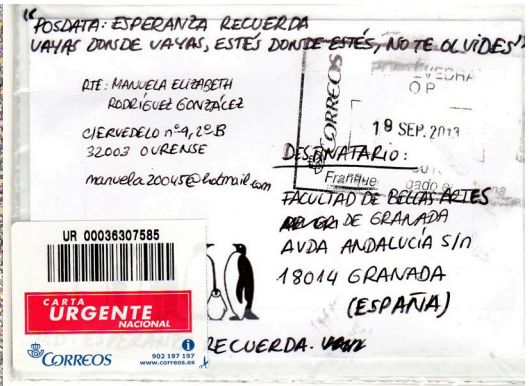 "POSDATA: ESPERANZA RECUERDA
VAYAS DONDE VAYAS, ESTÉS DONDE ESTÉS, NO TE OLVIDES"
RTE: MANUELA ELIZABETH
RODRÍGUEZ GONZÁLEZ
CIERVEDELO nº9, 2º B
32003 OURENSE
manuela20045@hotmail.com
CORREOS
O P
19 SEP. 2013
Franque
DESTINATARIO:
FACULTAD DE BELLAS ARTES
DE GRANADA
AVDA ANDALUCÍA S/n
18014 GRANADA
(ESPAÑA)
UR 00036307585
CARTA
URGENTE
NACIONAL
CORREOS
902 197 197
www.correos.es
RECUERDA.